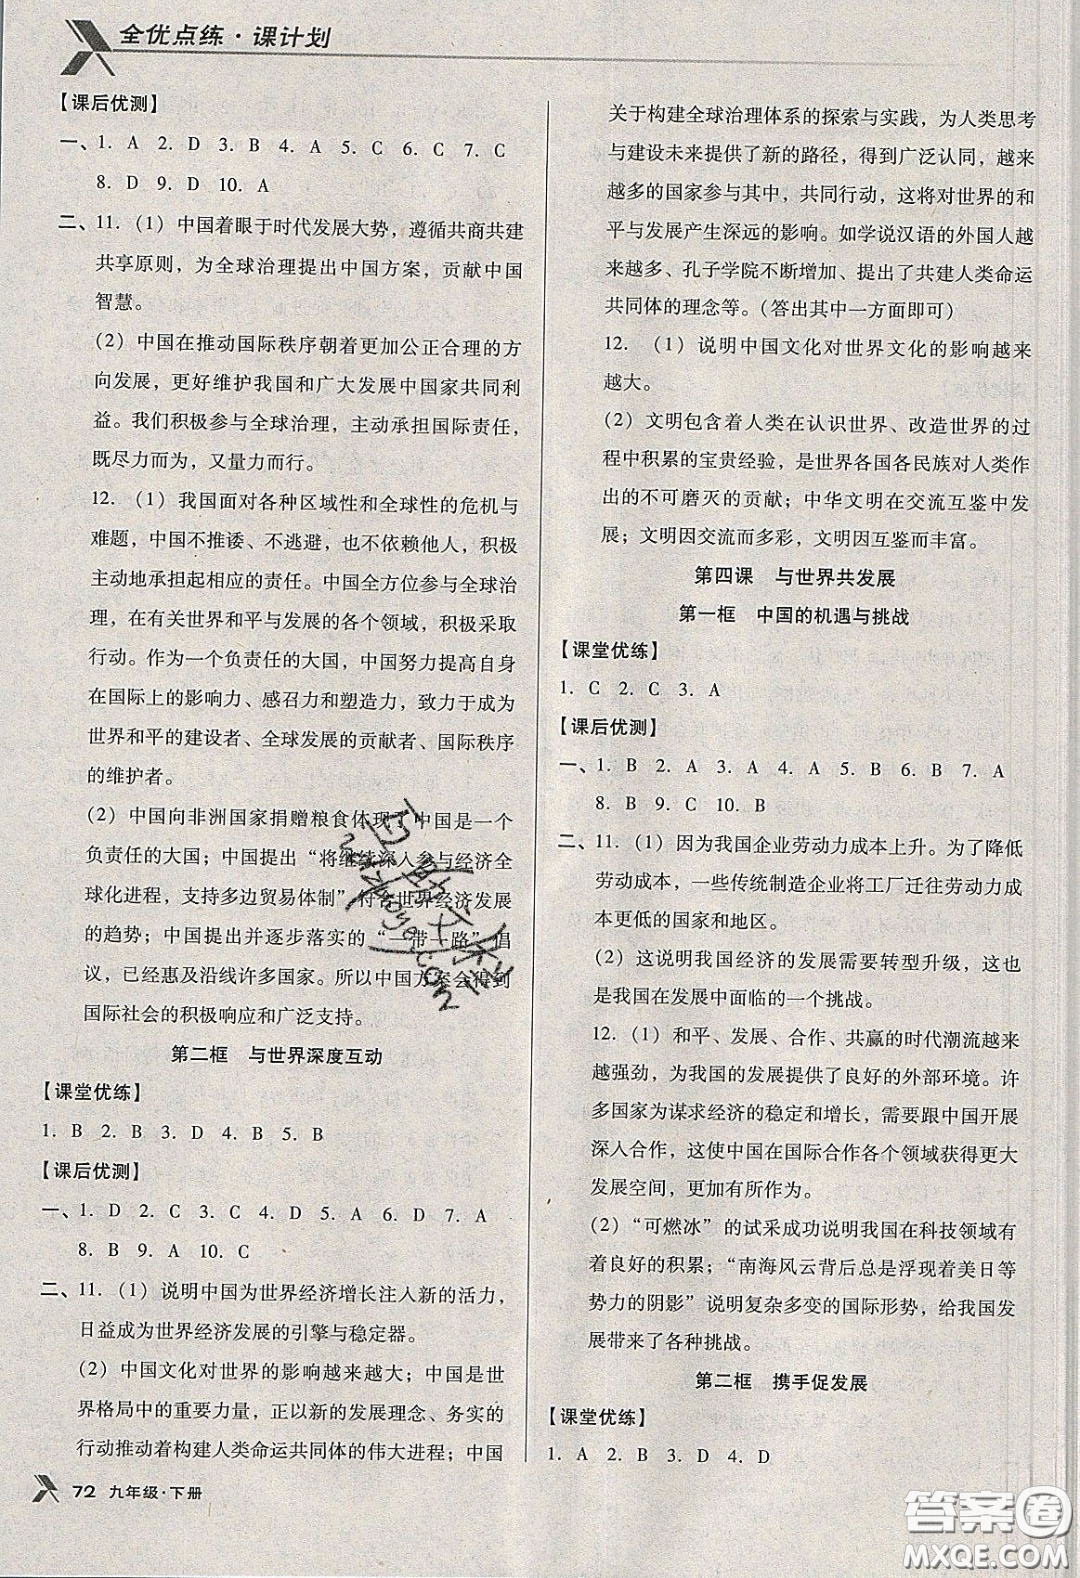 全优点练·课计划
【课后优测】
一、1. A 2. D 3. B 4. A 5. C 6. C 7. C
8. D 9. D 10. A
二、11. (1) 中国着眼于时代发展大势，遵循共商共建
共享原则，为全球治理提出中国方案，贡献中国
智慧。
(2) 中国在推动国际秩序朝着更加公正合理的方
向发展，更好维护我国和广大发展中国家共同利
益。我们积极参与全球治理，主动承担国际责任，
既尽力而为，又量力而行。
12. (1) 我国面对各种区域性和全球性的危机与
难题，中国不推诿、不逃避，也不依赖他人，积极
主动地承担起相应的责任。中国全方位参与全球治
理，在有关世界和平与发展的各个领域，积极采取
行动。作为一个负责任的大国，中国努力提高自身
在国际上的影响力、感召力和塑造力，致力于成为
世界和平的建设者、全球发展的贡献者、国际秩序
的维护者。
(2) 中国向非洲国家捐赠粮食体现了中国是一个
负责任的大国；中国提出“将继续深入参与经济全
球化进程，支持多边贸易体制”符合世界经济发展
的趋势；中国提出并逐步落实的“一带一路”倡
议，已经惠及沿线许多国家。所以中国方案会得到
国际社会的积极响应和广泛支持。
第二框 与世界深度互动
【课堂优练】
1. B 2. B 3. D 4. B 5. B
【课后优测】
一、1. D 2. C 3. C 4. D 5. A 6. D 7. A
8. B 9. A 10. C
二、11. (1) 说明中国为世界经济增长注入新的活力，
日益成为世界经济发展的引擎与稳定器。
(2) 中国文化对世界的影响越来越大；中国是世
界格局中的重要力量，正以新的发展理念、务实的
行动推动着构建人类命运共同体的伟大进程；中国
72 九年级·下册
关于构建全球治理体系的探索与实践，为人类思考
与建设未来提供了新的路径，得到广泛认同，越来
越多的国家参与其中，共同行动，这将对世界的和
平与发展产生深远的影响。如学说汉语的外国人越
来越多、孔子学院不断增加、提出了共建人类命运
共同体的理念等。（答出其中一方面即可）
12. (1) 说明中国文化对世界文化的影响越来
越大。
(2) 文明包含着人类在认识世界、改造世界的过
程中积累的宝贵经验，是世界各国各民族对人类作
出的不可磨灭的贡献；中华文明在交流互鉴中发
展；文明因交流而多彩，文明因互鉴而丰富。
第四课 与世界共发展
第一框 中国的机遇与挑战
【课堂优练】
1. C 2. C 3. A
【课后优测】
一、1. B 2. A 3. A 4. A 5. A 6. B 7. A
8. B 9. C 10. B
二、11. (1) 因为我国企业劳动力成本上升。为了降低
劳动成本，一些传统制造企业将工厂迁往劳动力成
本更低的国家和地区。
(2) 这说明我国经济的发展需要转型升级，这也
是我国在发展中面临的一个挑战。
12. (1) 和平、发展、合作、共赢的时代潮流越来
越强劲，为我国的发展提供了良好的外部环境。许
多国家为谋求经济的稳定和增长，需要跟中国开展
深入合作，这使中国在国际合作各个领域获得更大
发展空间，更有所作为。
(2) “可燃冰”的试采成功说明我国在科技领域有
着良好的积累；“南海风云背后总是浮现着美日等
势力的阴影”说明复杂多变的国际形势，给我国发
展带来了各种挑战。
第二框 携手促发展
【课堂优练】
1. A 2. B 3. D 4. D
答案圈
MXQE.COM